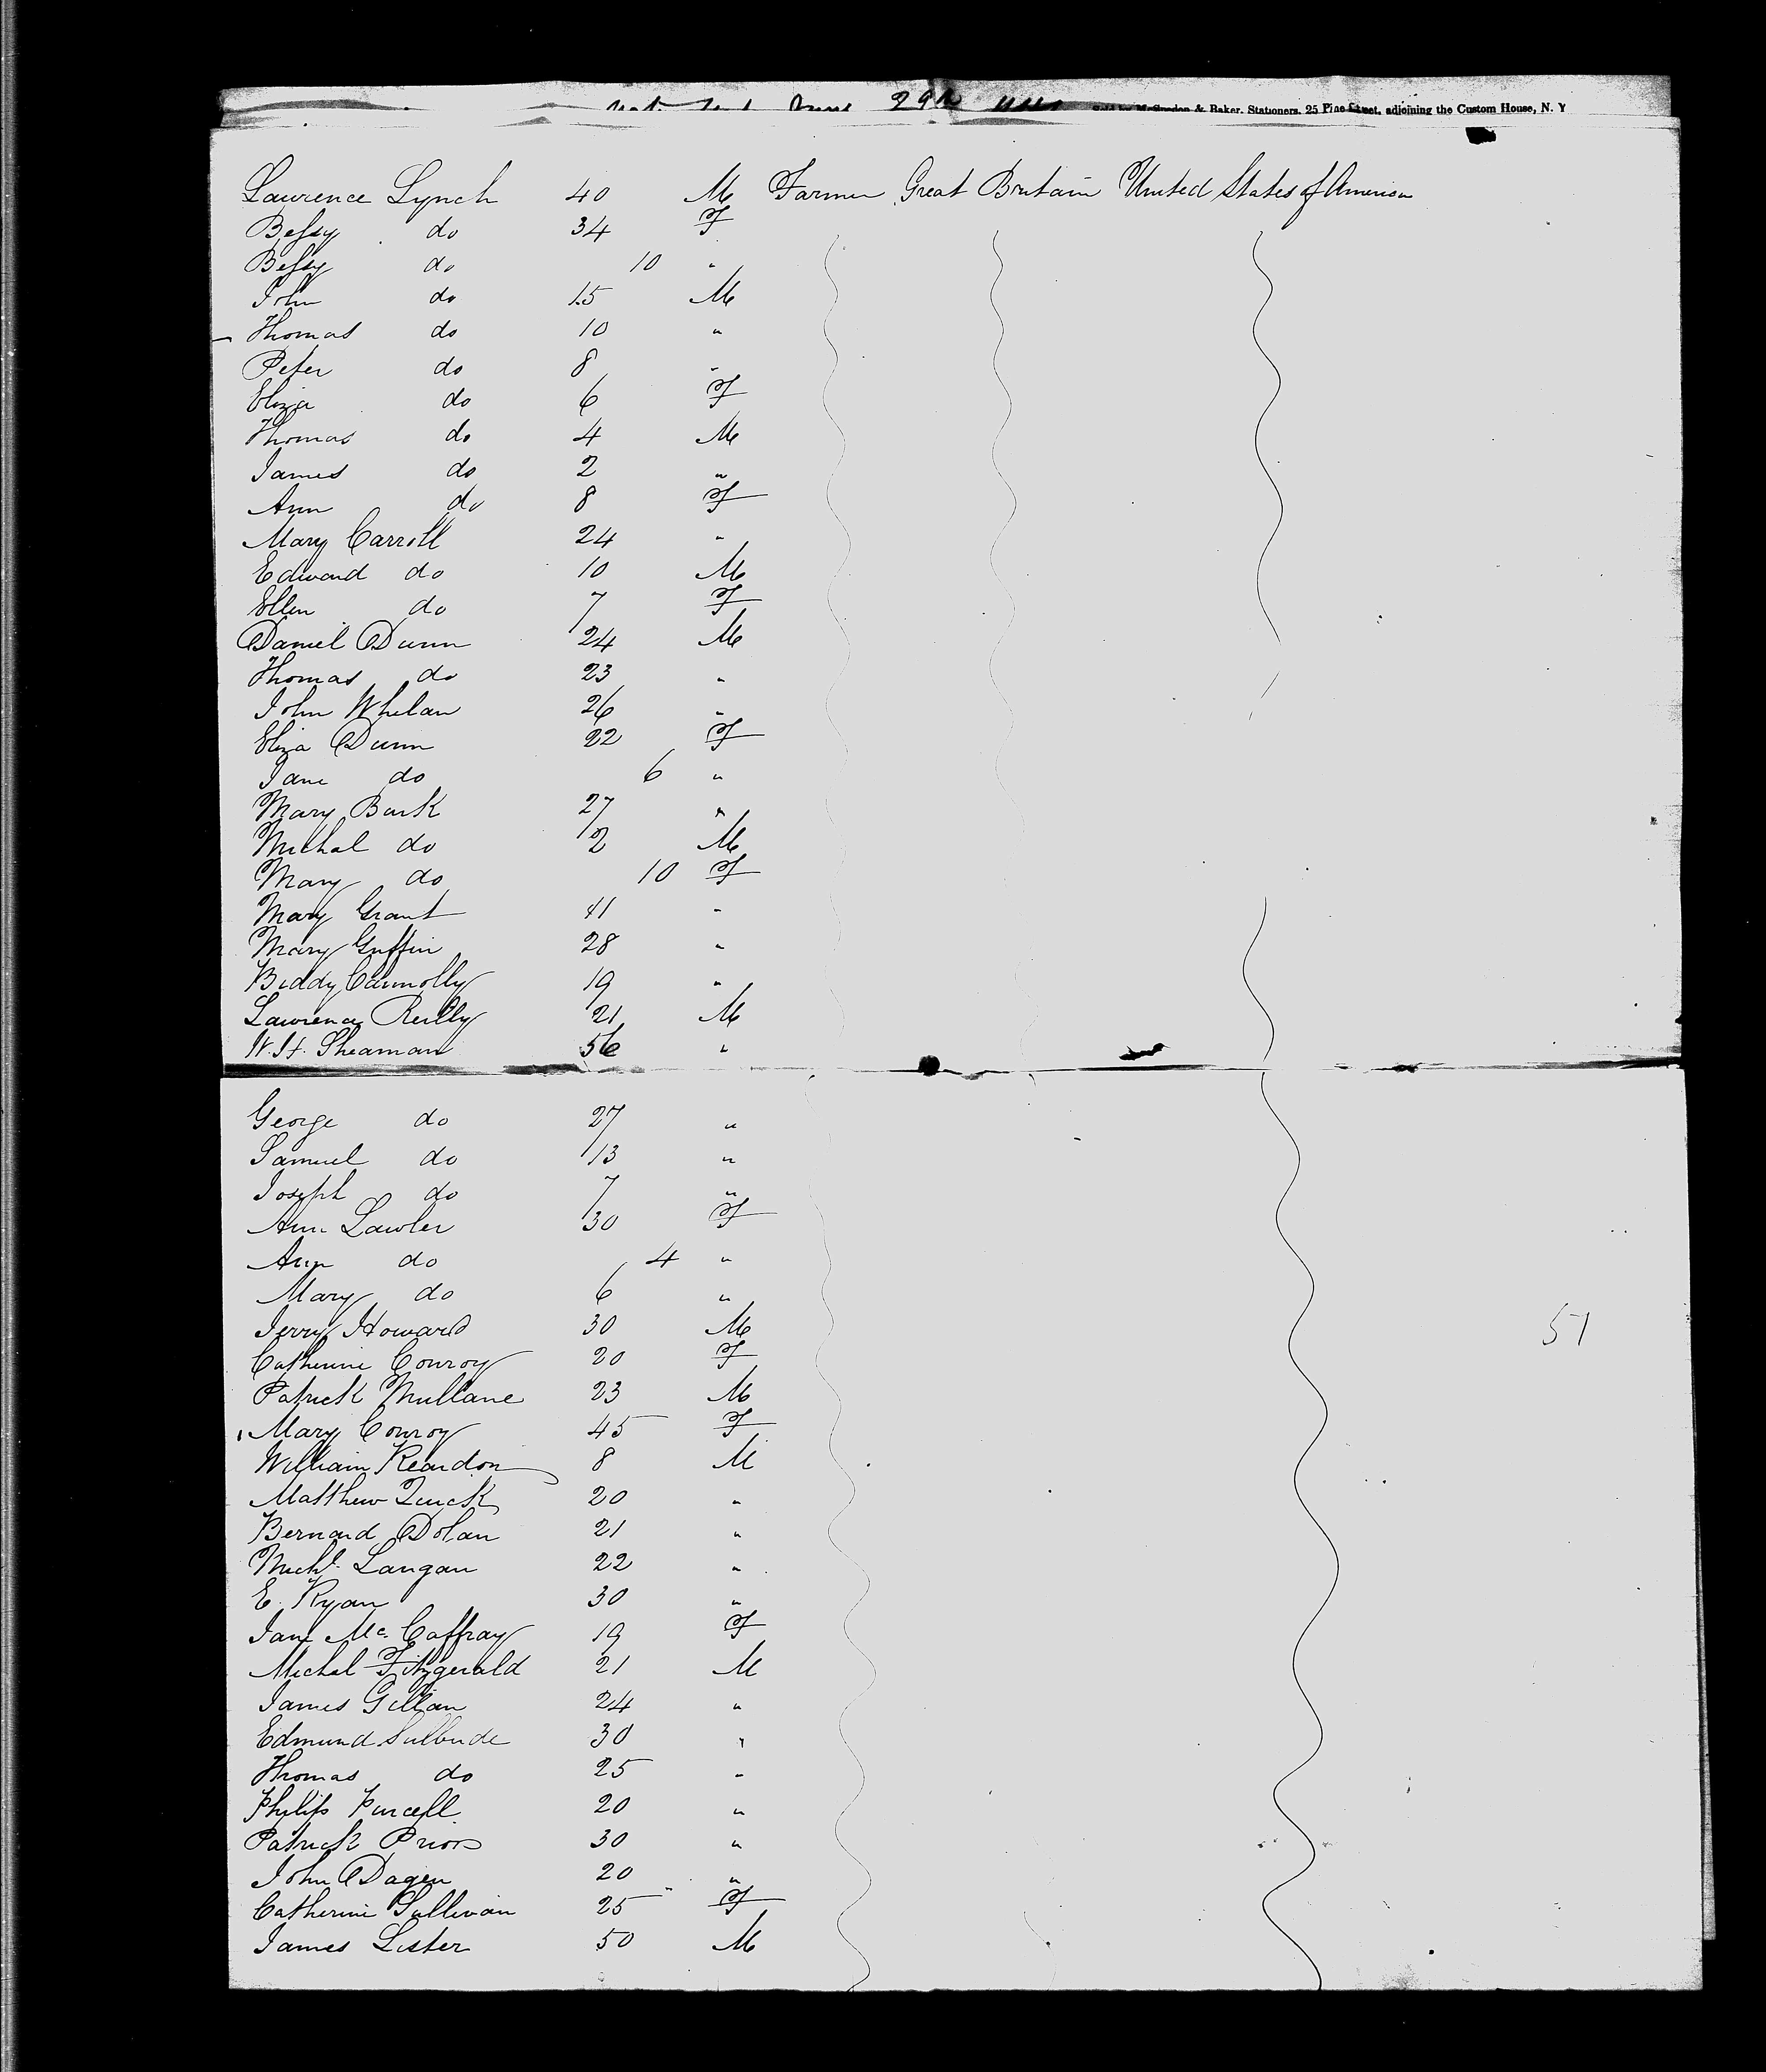 29th
& Baker, Stationers, 25 Pine Street, adjoining the Custom House, N. Y
Lawrence Lynch 40 M Farmer Great Britain United States of America
Bessy do 34 F
Bessy do 10 "
John do 15 M
Thomas do 10 "
Peter do 8 "
Eliza do 6 F
Thomas do 4 M
James do 2 "
Ann do 8 F
Mary Carroll 24 "
Edward do 10 M
Ellen do 7 F
Daniel Dunn 24 M
Thomas do 23 "
John Whelan 26 "
Eliza Dunn 22 F
Jane do 6 "
Mary Burk 27 "
Michal do 2 M
Mary do 10 F
Mary Grant 41 "
Mary Griffin 28 "
Biddy Connolly 19 "
Lawrence Reilly 21 M
W. H. Sheaman 56 "
George do 27 "
Samuel do 13 "
Joseph do 7 "
Ann Lawler 30 F
Ann do 4 "
Mary do 6 "
Jerry Howard 30 M
51
Catherine Conroy 20 F
Patrick Mullane 23 M
Mary Conroy 45 F
William Reardon 8 M
Matthew Quick 20 "
Bernard Dolan 21 "
Michl. Langan 22 "
E. Ryan 30 "
Jane Mc. Caffray 19 F
Michal Fitzgerald 21 M
James Gillan 24 "
Edmund 30 "
Thomas do 25 "
Philip Purcell 20 "
Patrick Prior 30 "
John Dagen 20 "
Catherine Sullivan 25 F
James Lister 50 M